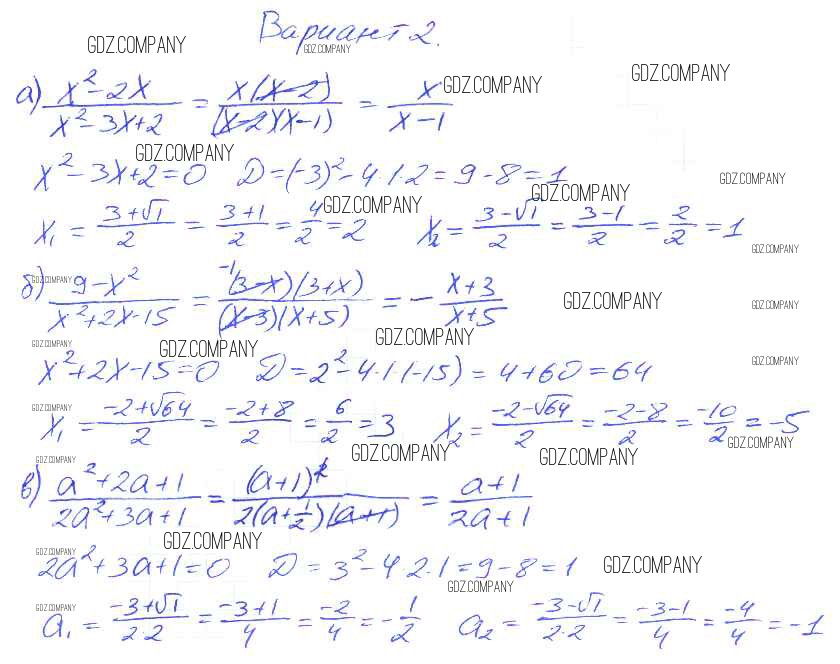 Вариант 2.
GDZ.COMPANY GDZ.COMPANY GDZ.COMPANY GDZ.COMPANY
а) (x² - 2x)/(x² - 3x + 2) = (x(x - 2))/((x - 2)(x - 1)) = x/(x - 1)
GDZ.COMPANY
x² - 3x + 2 = 0 D = (-3)² - 4·1·2 = 9 - 8 = 1
GDZ.COMPANY GDZ.COMPANY GDZ.COMPANY
x₁ = (3 + √1)/2 = (3 + 1)/2 = 4/2 = 2 x₂ = (3 - √1)/2 = (3 - 1)/2 = 2/2 = 1
GDZ.COMPANY GDZ.COMPANY
б) (9 - x²)/(x² + 2x - 15) = (-1(3 - x)(3 + x))/((x - 3)(x + 5)) = - (x + 3)/(x + 5)
GDZ.COMPANY GDZ.COMPANY
GDZ.COMPANY GDZ.COMPANY GDZ.COMPANY
x² + 2x - 15 = 0 D = 2² - 4·1·(-15) = 4 + 60 = 64
GDZ.COMPANY GDZ.COMPANY
x₁ = (-2 + √64)/2 = (-2 + 8)/2 = 6/2 = 3 x₂ = (-2 - √64)/2 = (-2 - 8)/2 = -10/2 = -5
GDZ.COMPANY
GDZ.COMPANY GDZ.COMPANY GDZ.COMPANY
в) (a² + 2a + 1)/(2a² + 3a + 1) = (a + 1)²/(2(a + 1/2)(a + 1)) = (a + 1)/(2a + 1)
GDZ.COMPANY
GDZ.COMPANY GDZ.COMPANY
2a² + 3a + 1 = 0 D = 3² - 4·2·1 = 9 - 8 = 1
GDZ.COMPANY GDZ.COMPANY
a₁ = (-3 + √1)/(2·2) = (-3 + 1)/4 = -2/4 = -1/2 a₂ = (-3 - √1)/(2·2) = (-3 - 1)/4 = -4/4 = -1